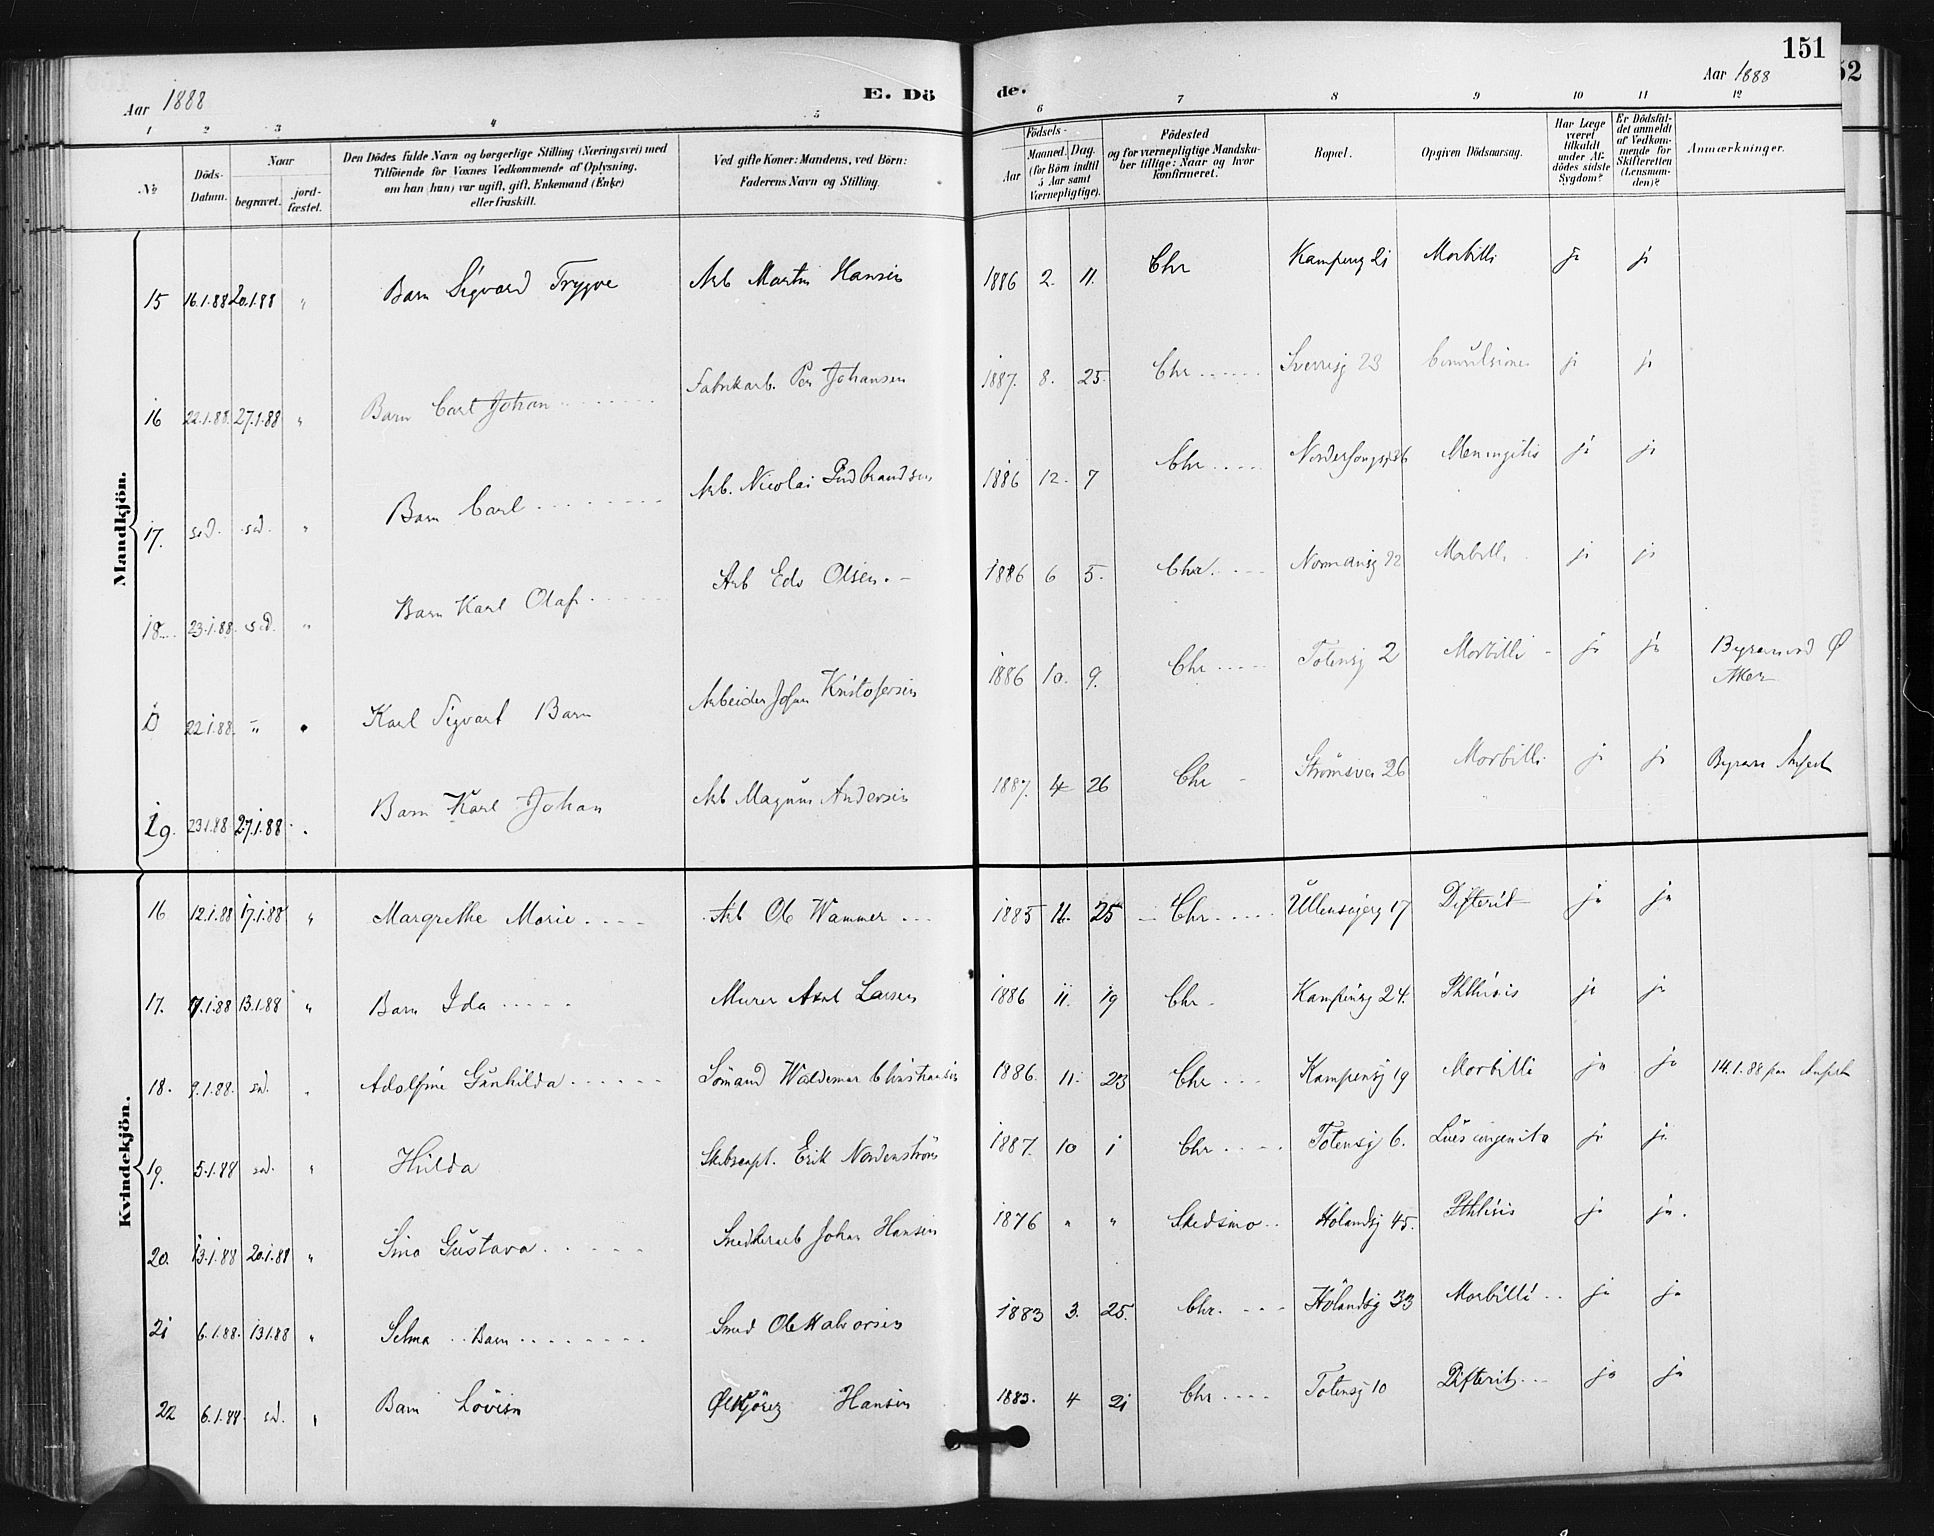 151
52
Aar 1888
E. Dö
de.
Aar 1888
1 2 3 4 5 6 7 8 9 10 11 12
No
Döds-Datum.
Naar
begravet.
jord-fæstet.
Den Dödes fulde Navn og borgerlige Stilling (Næringsvei) med
Tilföiende for Voxnes Vedkommende af Oplysning,
om han (hun) var ugift, gift, Enkemand (Enke)
eller fraskilt.
Ved gifte Koner: Mandens, ved Börn:
Faderens Navn og Stilling.
Födsels-
Aar
Maaned. Dag
(for Börn indtil
5 Aar samt
Værnepligtige).
Födested
og for værnepligtige Mandsku-
ber tillige: Naar og hvor
konfirmeret.
Bopæl.
Opgiven Dödsaarsag.
Har Læge
været
tilkaldt
under Af-
dödes sidste
Sygdom?
Er Dödsfal-
det anmeldt
af Vedkom-
mende for
Skifteretten
(Lensman-
den)?
Anmærkninger.
Mandkjön.
15 16.1.88 20.1.88 " Barn Sigvard Trygve Arb Martin Hansen 1886 2. 11. Chr Kampeng 21 Morbilli ja ja
16 22.1.88. 27.1.88 " Barn Carl Johan Fabrikarb. Per Johansen 1887. 8. 25. Chr Sverresg 23 Convulsione ja ja
17. sad. sad. " Barn Carl Arb. Nicolai Gudbrandsen 1886 12. 7 Chr Meningitis ja ja
18 23.1.88. sad. " Barn Karl Olaf Arb Edv Olsen. 1886 6 5. Chr. Normansg 22 Morbilli ja ja
0 22.1.88. " Karl Sigvart Barn Arbeider Johan Kristofersen 1886 10. 9. Chr Totensg 2 Morbilli ja ja Ø Aker
19. 23.1.88 27.1.88 " Barn Karl Johan Arb Magnus Andersen 1887. 4 26 Chr Strömsvei 26 Morbilli ja ja
Kvindekjön.
16 12.1.88 17.1.88 " Margrethe Marie Arb Ole Wammer 1885 11. 25 Chr Ullensagerg 17 Difterit ja ja
17. 7.1.88 13.1.88 " Barn Ida Murer Axel Larsen 1886 11. 19 Chr Kampensg 24. Phthisis ja ja
18. 9.1.88. sad. " Adolfine Gunhilda Sömand Waldemar Christiansen 1886. 11. 23 Chr Kampensg 19 Morbilli ja ja 14.1.88
19. 5.1.88 sad. " Hilda Skibscapt. Erik Nordenström 1887. 10 1 Chr Totensg 6. Lues congenita ja ja
20. 13.1.88 20.1.88 " Sina Gustava Snedkerarb Johan Hansen 1876 " " Skedsmo Hölandsg 45. Phthisis ja ja.
21 6.1.88. 13.1.88 " Selma Barn Smed Ole Halvorsen 1883 3. 25. Chr. Hölandsg 33 Morbilli ja ja
22 6.1.88. sad. " Barn Lovisa Ølkjörer Hansen 1883. 4 21 Chr Totensg 10 Difterit ja ja